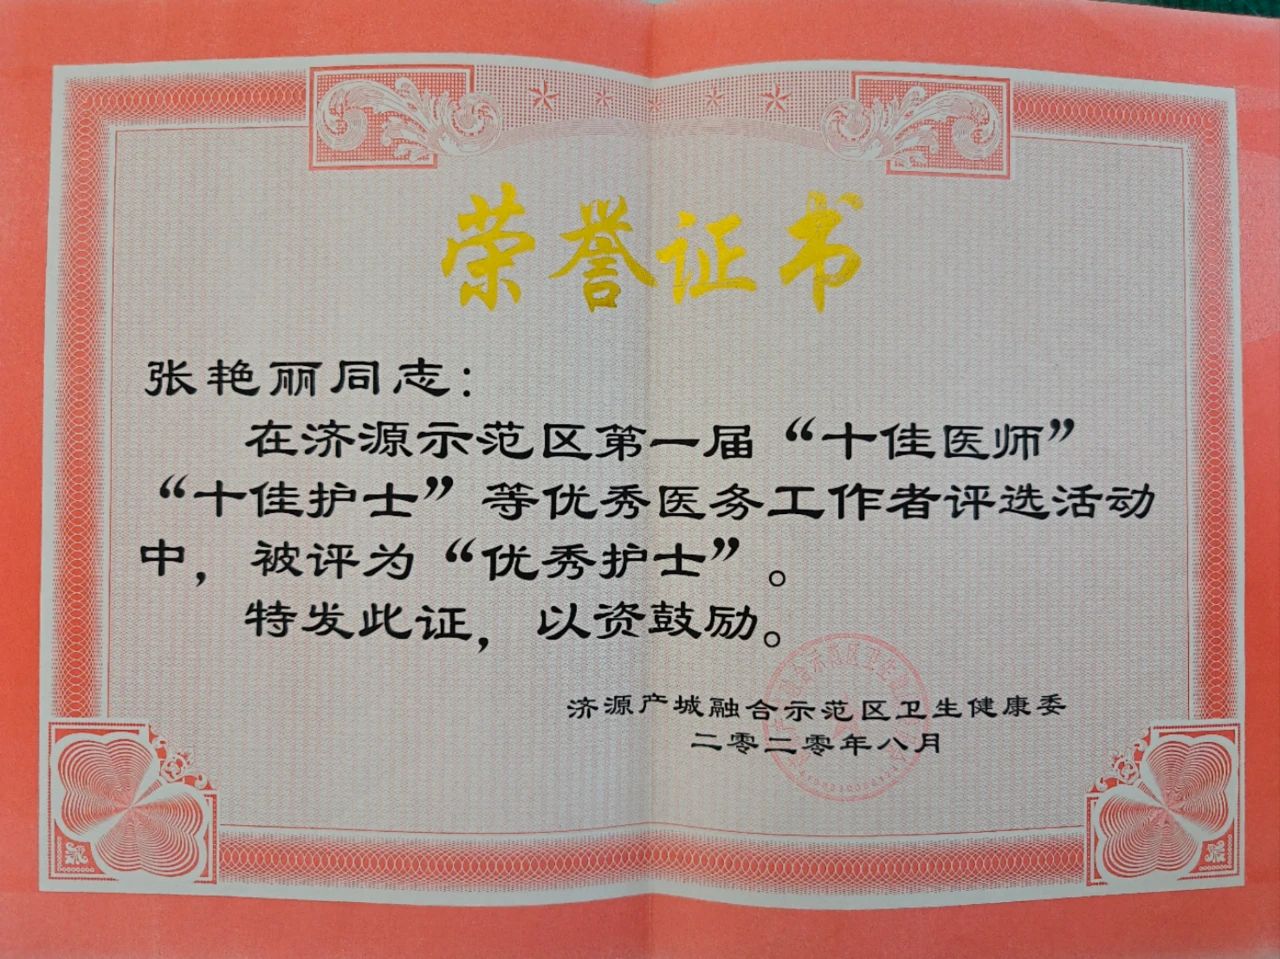 荣誉证书
张艳丽同志：
在济源示范区第一届“十佳医师”
“十佳护士”等优秀医务工作者评选活动
中，被评为“优秀护士”。
特发此证，以资鼓励。
济源产城融合示范区卫生健康委
二零二零年八月